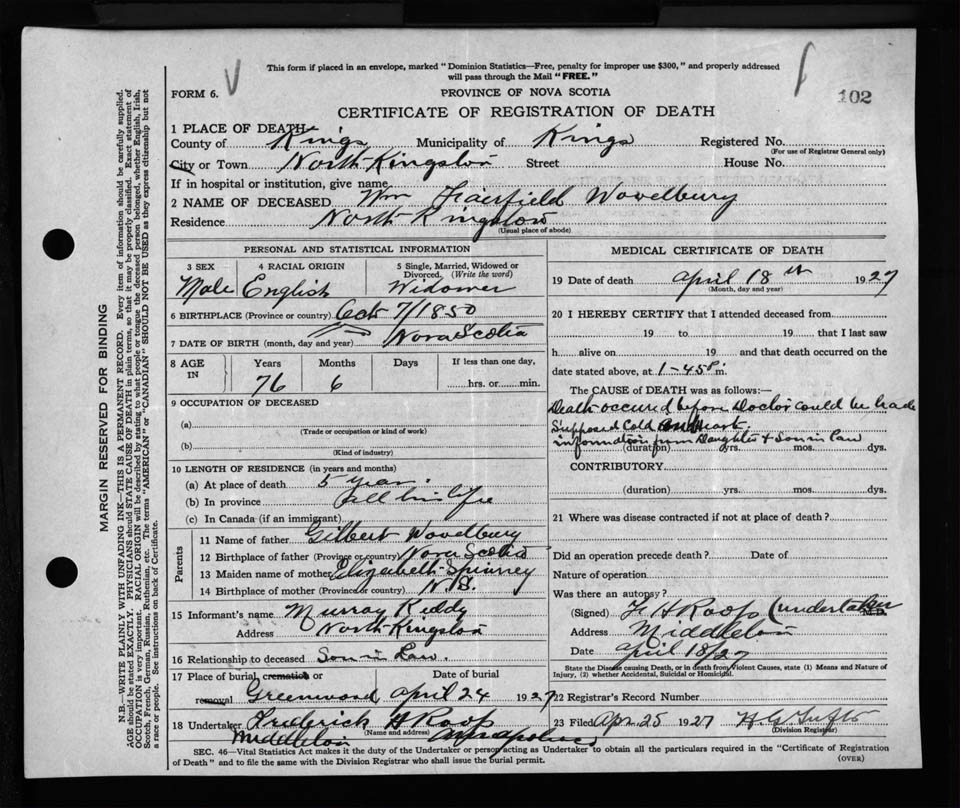 This form if placed in an envelope, marked "Dominion Statistics—Free, penalty for improper use $300," and properly addressed
will pass through the Mail "FREE."
FORM 6. PROVINCE OF NOVA SCOTIA 102
CERTIFICATE OF REGISTRATION OF DEATH
1 PLACE OF DEATH
County of Kings Municipality of Kings Registered No.
(For use of Registrar General only)
City or Town North Kingston Street House No.
If in hospital or institution, give name
2 NAME OF DECEASED Wm Fairfield Woodbury
Residence North Kingston
(Usual place of abode)
PERSONAL AND STATISTICAL INFORMATION
3 SEX 4 RACIAL ORIGIN 5 Single, Married, Widowed or
Divorced. (Write the word)
Male English Widower
6 BIRTHPLACE (Province or country) Oct 7/1850
7 DATE OF BIRTH (month, day and year) Nova Scotia
8 AGE IN Years Months Days If less than one day,
76 6 hrs. or min.
9 OCCUPATION OF DECEASED
(a)
(Trade or occupation or kind of work)
(b)
(Kind of industry)
10 LENGTH OF RESIDENCE (in years and months)
(a) At place of death 5 year.
(b) In province All his life
(c) In Canada (if an immigrant)
Parents
11 Name of father Gilbert Woodbury
12 Birthplace of father (Province or country) Nova Scotia
13 Maiden name of mother Elizabeth Spinney
14 Birthplace of mother (Province or country) N S.
15 Informant's name Murray Reddy
Address North Kingston
16 Relationship to deceased Son in Law.
17 Place of burial, cremation or removal Date of burial
Greenwood April 24 1927
18 Undertaker Frederick H Roop
(Name and address)
Middleton Annapolis
MEDICAL CERTIFICATE OF DEATH
19 Date of death April 18th 1927
(Month, day and year)
20 I HEREBY CERTIFY that I attended deceased from
19 to 19 that I last saw
h alive on 19 and that death occurred on the
date stated above, at 1-45 P m.
The CAUSE of DEATH was as follows:—
Death occured before Doctor could be had
Supposed Cold and Heart.
information from Daughter & Son in law
(duration) yrs. mos. dys.
CONTRIBUTORY
(duration) yrs. mos. dys.
21 Where was disease contracted if not at place of death?
Did an operation precede death? Date of
Nature of operation
Was there an autopsy?
(Signed) F H Roop (undertaker M.D.
Address Middleton
Date April 18/27
State the Disease causing Death, or in death from Violent Causes, state (1) Means and Nature of
Injury, (2) whether Accidental, Suicidal or Homicidal.
22 Registrar's Record Number
23 Filed Apr. 25 1927 H G Tufts
(Division Registrar)
SEC. 46—Vital Statistics Act makes it the duty of the Undertaker or person acting as Undertaker to obtain all the particulars required in the "Certificate of Registration
of Death" and to file the same with the Division Registrar who shall issue the burial permit.
(OVER)
MARGIN RESERVED FOR BINDING
N.B.—WRITE PLAINLY WITH UNFADING INK—THIS IS A PERMANENT RECORD. Every item of information should be carefully supplied.
AGE should be stated EXACTLY. PHYSICIANS should STATE CAUSE OF DEATH in plain terms, so that it may be properly classified. Exact statement of
OCCUPATION is very important. RACIAL ORIGIN will be described by stating to what people or tongue the deceased person belonged, whether English, Irish,
Scotch, French, German, Russian, Ruthenian, etc. The terms "AMERICAN" or "CANADIAN" SHOULD NOT BE USED as they express citizenship but not
a race or people. See instructions on back of Certificate.